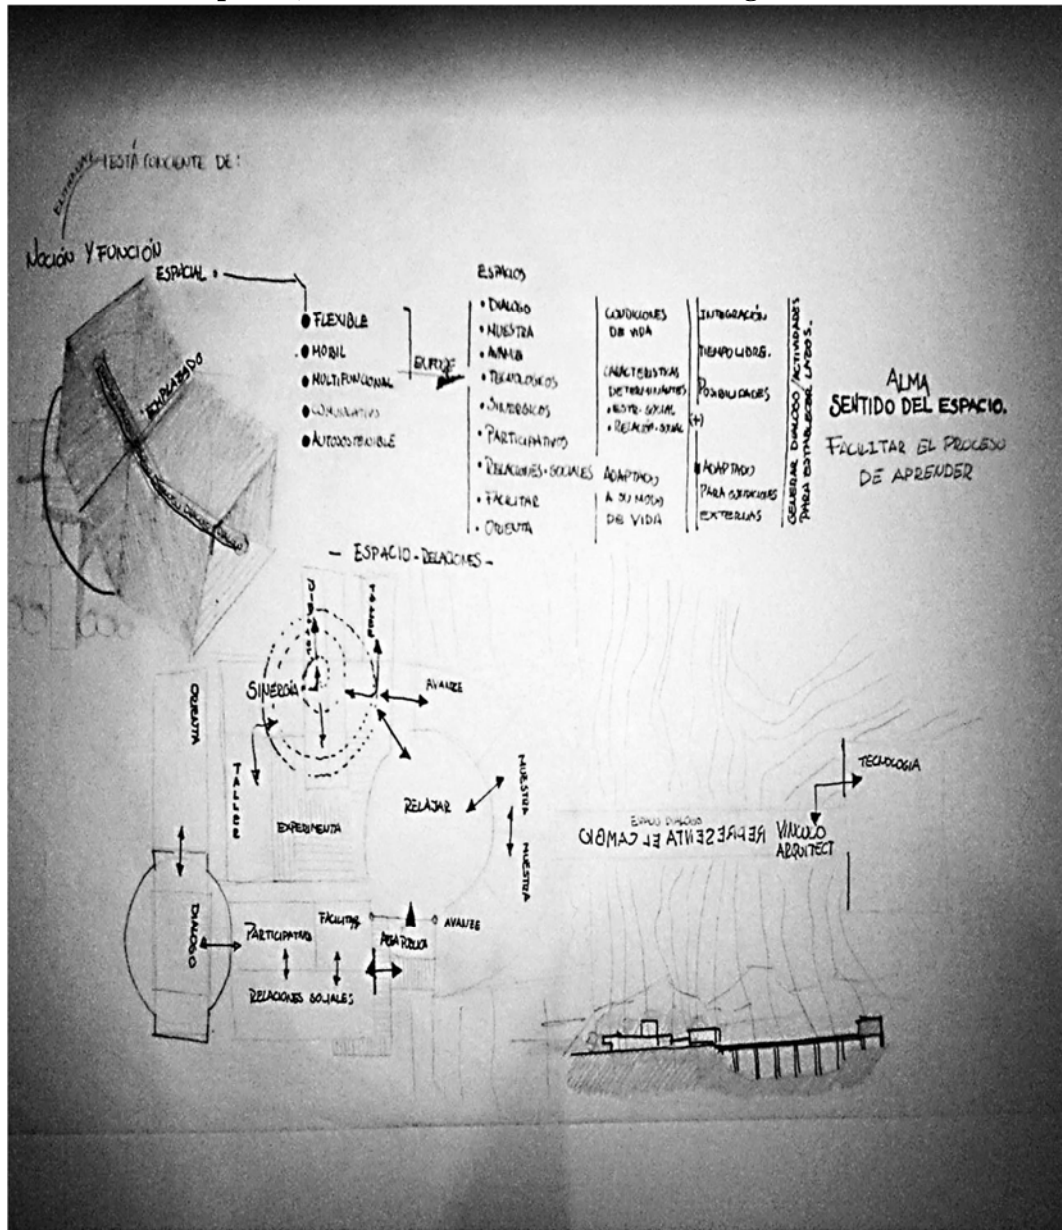 ESTÁ CONCIENTE DE:
NOCIÓN Y FUNCIÓN
ESPACIAL.
EMPLAZADO
• FLEXIBLE
• MOBIL
• MULTIFUNCIONAL
• AUTOSOSTENIBLE
ENFOQUE
ESPACIOS
• DIALOGO
• MUESTRA
• TECNOLOGICOS
• SINERGICOS
• PARTICIPATIVOS
• RELACIONES-SOCIALES
• FACILITAR
• ORIENTA
CONDICIONES
DE VIDA
CARACTERISTICAS
DETERMINANTES
• ESTR-SOCIAL
• RELACIÓN-SOCIAL
ADAPTADO
A SU MODO
DE VIDA
INTEGRACIÓN
TIEMPO LIBRE.
POSIBILIDADES
(+)
ADAPTADO
PARA CONDICIONES
EXTERNAS
GENERAR DIALOGO/ACTIVIDADES
PARA ESTABLECER LAZOS.
ALMA
SENTIDO DEL ESPACIO.
FACILITAR EL PROCESO
DE APRENDER
- ESPACIO-RELACIONES -
SINERGÍA
AVANZE
ORIENTA
TALLER
EXPERIMENTA
RELAJAR
MUESTRA
MUESTRA
TECNOLOGIA
ESPACIO DIALOGO
REPRESENTA EL CAMBIO
VINCULO
ARQUITECT
DIALOGO
PARTICIPATIVO
FACILITAR
AREA PUBLICA
AVANZE
RELACIONES SOCIALES